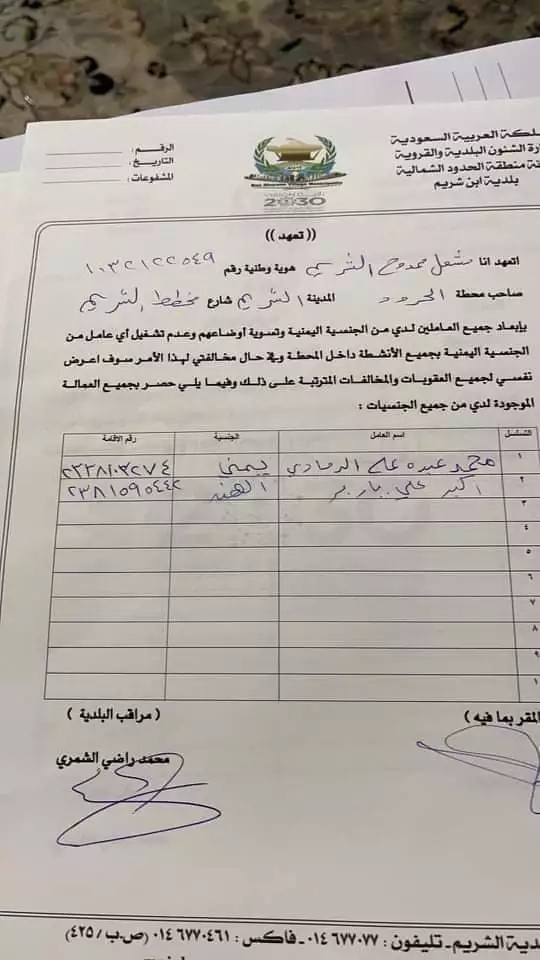 المملكة العربية السعودية
وزارة الشئون البلدية والقروية
أمانة منطقة الحدود الشمالية
بلدية ابن شريم
الرقم :
التاريخ :
المشفوعات :
VISION رؤية
2030
(( تعهد ))
اتعهد انا مشعل ممدوح الشريم هوية وطنية رقم ١٠٣٢١٢٢٥٤٩
صاحب محطة الحدود المدينة الشريم شارع مخطط الشريم
بإبعاد جميع العاملين لدي من الجنسية اليمنية وتسوية أوضاعهم وعدم تشغيل أي عامل من
الجنسية اليمنية بجميع الأنشطة داخل المحطة وفي حال مخالفتي لهذا الأمر سوف اعرض
نفسي لجميع العقوبات والمخالفات المترتبة على ذلك وفيما يلي حصر بجميع العمالة
الموجودة لدي من جميع الجنسيات :
التسلسل اسم العامل الجنسية رقم الاقامة
١ محمد عبده علي الرمادي يمني ٢٣٣٨١٠٣٢٧٤
٢ اكبر علي بابر الهند ٢٣٨١٥٩٥٤٤٢
٣
٤
٥
٦
٧
٨
٩
١
المقر بما فيه )
( مراقب البلدية )
محمد راضي الشمري
دية الشريم - تليفون : ٠١٤٦٧٧٠٧٧ - فاكس : ٠١٤٦٧٧٠٤٦١ (ص.ب/ ٤٢٥)